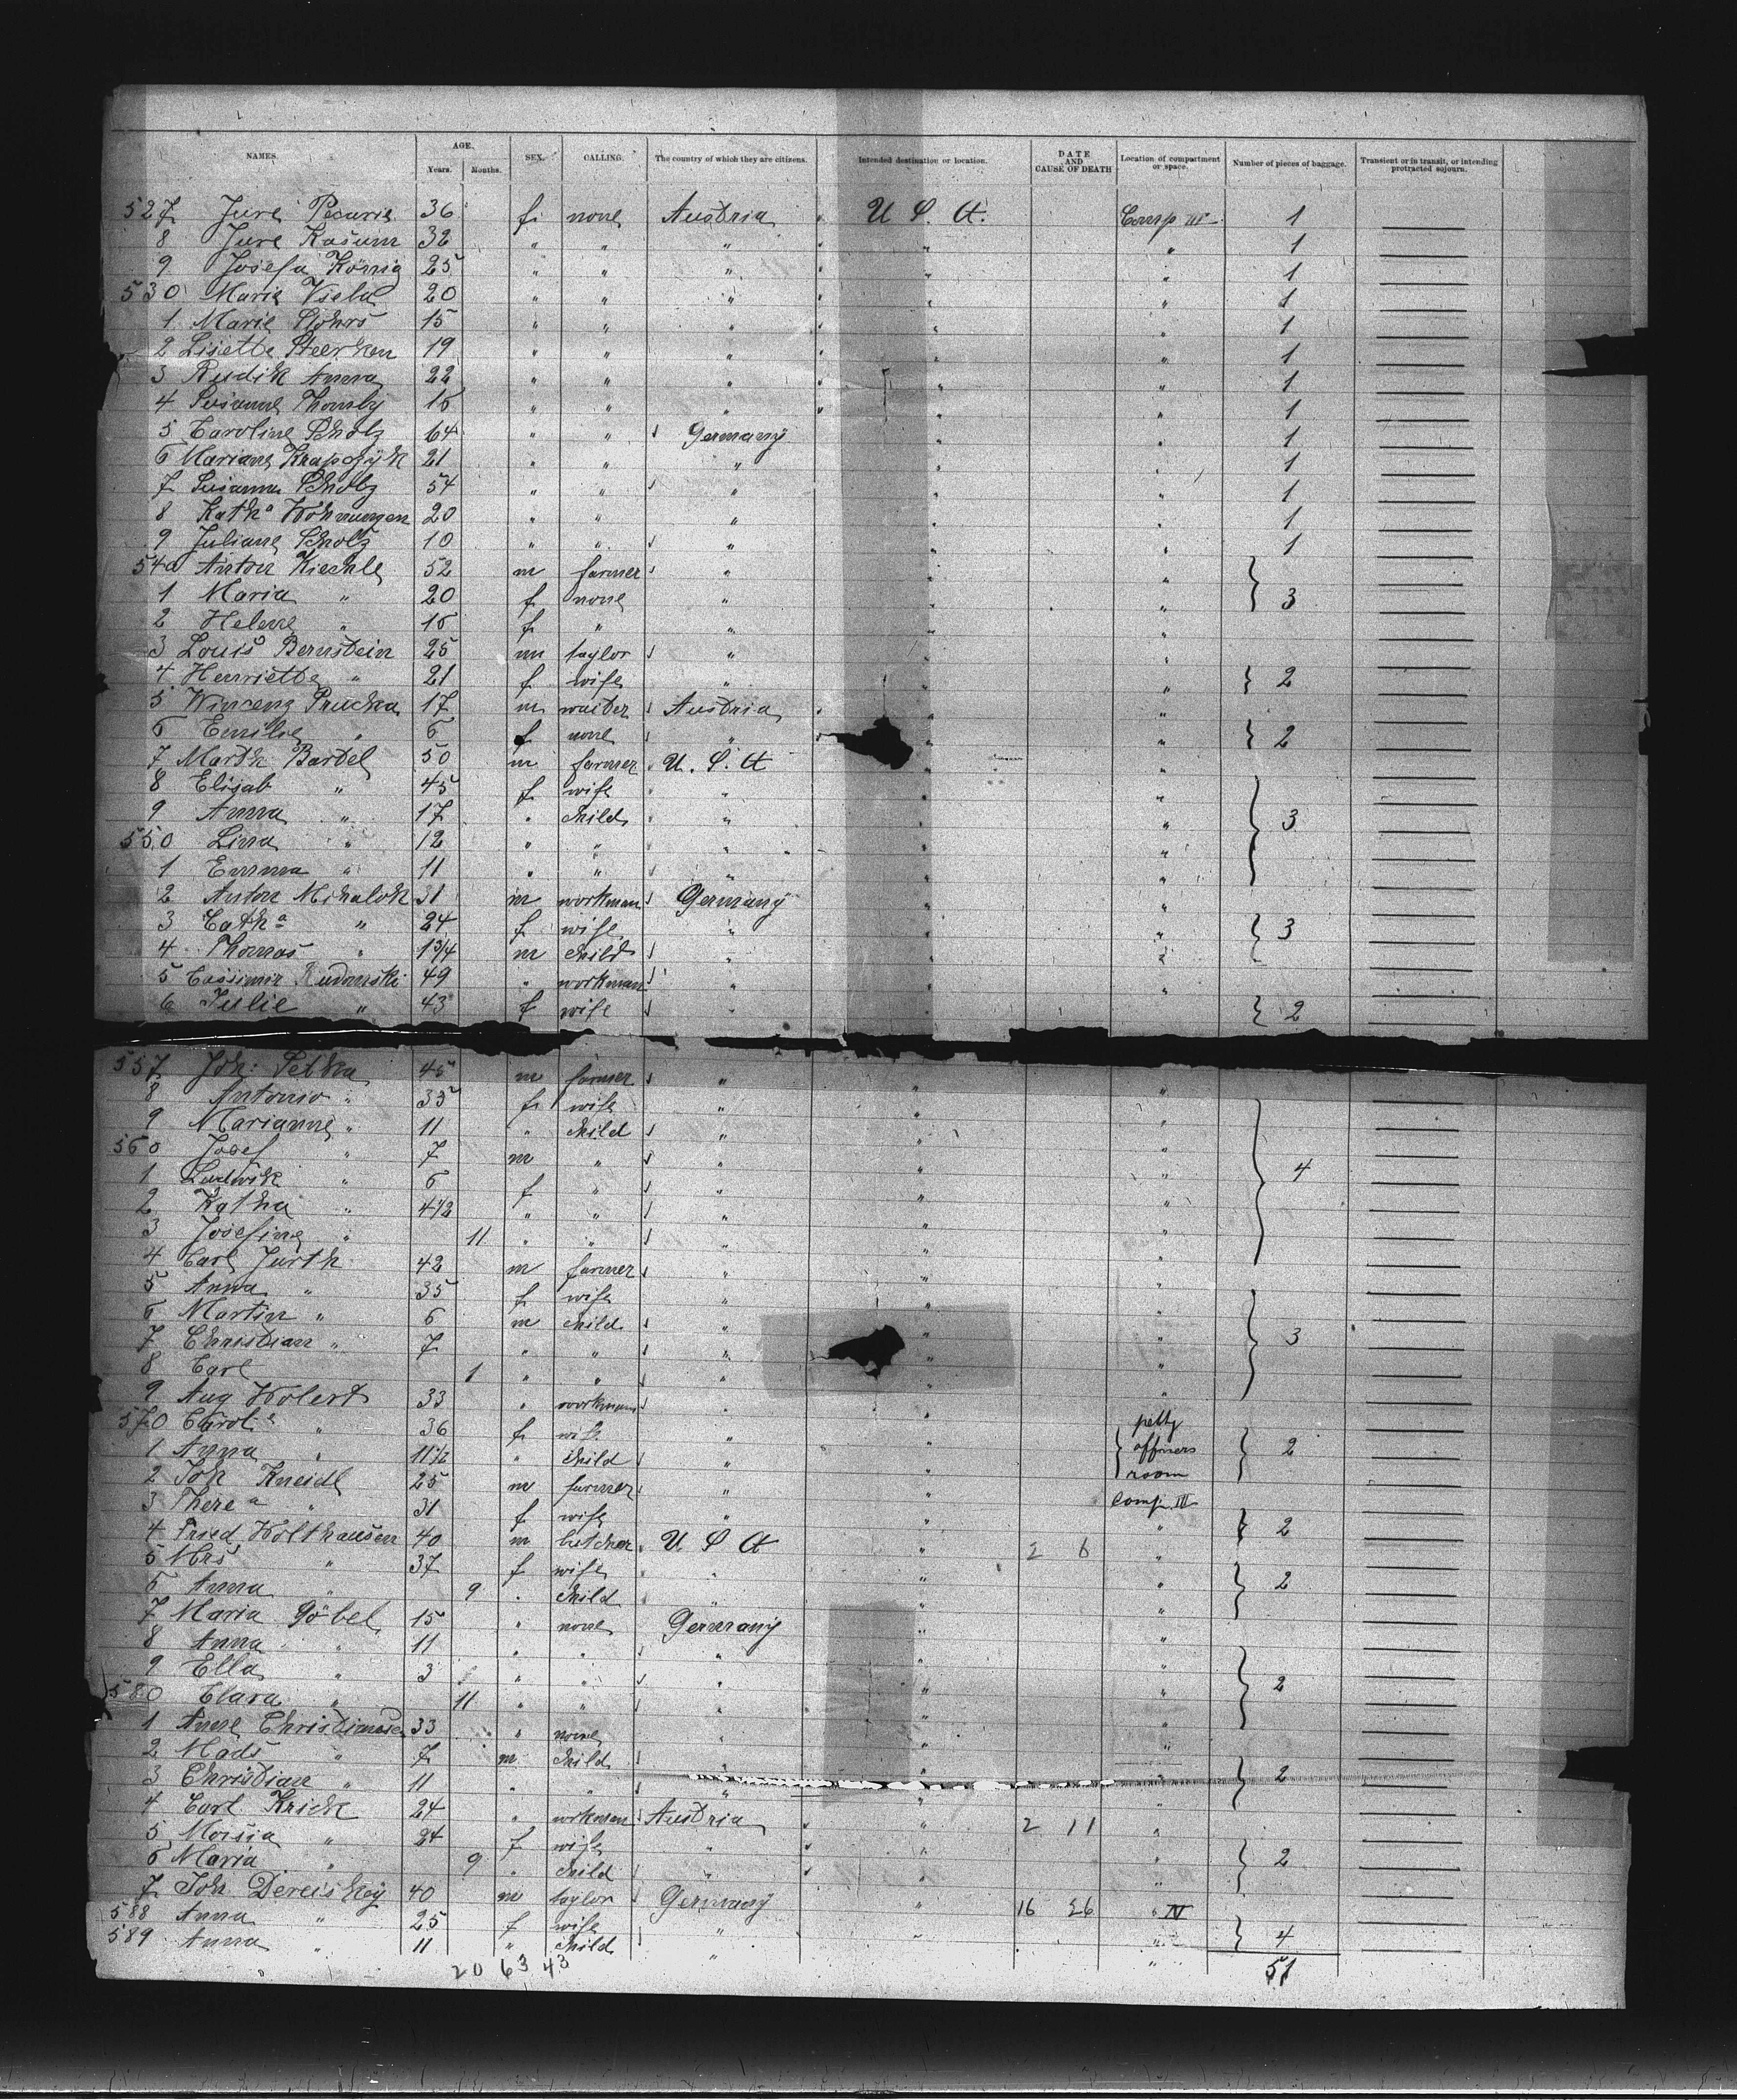 NAMES. AGE. Years. Months. SEX. CALLING. The country of which they are citizens. Intended destination or location. DATE AND CAUSE OF DEATH Location of compartment or space. Number of pieces of baggage. Transient or in transit, or intending protracted sojourn.
527 Jure Pecuric 36 f none Austria U. S. A. Comp III 1
8 Jure Kasum 32 " " " " " 1
9 Josefa König 25 " " " " " 1
530 Marie Visela 20 " " " " " 1
1 Marie Stöhrs 15 " " " " " 1
2 Lisette Steerken 19 " " " " " 1
3 Rudik Anna 22 " " " " " 1
4 Susanna 15 " " " " " 1
5 Caroline Scholz 64 " " Germany " " 1
6 Mariane Krapczyk 21 " " " " " 1
7 Susanna Scholz 54 " " " " " 1
8 Kath.a 20 " " " " " 1
9 Juliane Scholz 10 " " " " " 1
540 Anton Kiechle 52 m farmer " " "
1 Maria " 20 f none " " " 3
2 Helene " 15 f " " " "
3 Louis Bernstein 25 m taylor " " "
4 Henriette " 21 f wife " " " 2
5 Winceng Prucka 17 m waiter Austria " "
6 Emilie " 6 f none " " " 2
7 Marth Bartel 50 m farmer U. S. A " "
8 Elisab " 45 f wife " " "
9 Anna " 17 " child " " " 3
550 Lina " 12 " " " " "
1 Emma " 11 " " " " "
2 Anton Michalok 31 m workman Germany " "
3 Cath.a " 24 f wife " " " 3
4 Thomas " 1 3/4 m child " " "
5 Cassimir Rudonski 49 " workman " " "
6 Julie " 43 f wife " " " 2
557 Joh: Petka 45 m farmer " " "
8 Antonio " 35 f wife " " "
9 Marianne " 11 " child " " "
560 Josef " 7 m " " " " 4
1 Ludwik " 6 f " " " "
2 Katha " 4 1/2 " " " " "
3 Josefine " 11 " " " " "
4 Carl Jurth 42 m farmer " " "
5 Anna " 35 f wife " " "
6 Martin " 6 m child " " "
7 Christian " 7 " " " " " 3
8 Carl 1 " " " " "
9 Aug Wolert 33 " workman " "
570 Carol.e " 36 f wife " " petty
1 Anna " 11 1/2 " child " " officers 2
2 Joh Kneidl 25 m farmer " " room
3 There.a " 31 f wife " " Comp. III
4 Fried Wolthausen 40 m butcher U S A " 2 6 " 2
5 Mrs " 37 f wife " " "
6 Anna " 9 " child " " " 2
7 Maria Göbel 15 " none Germany " "
8 Anna " 11 " " " " "
9 Ella " 3 " " " " " 2
580 Clara " 11 " " " " "
1 Anne Christiansen 33 " none " " "
2 Mads " 7 m child " " "
3 Christian " 11 " " " " " 2
4 Carl Krick 24 " workman Austria " 2 11 "
5 " 24 f wife " " "
6 Maria " 9 " child " " " 2
7 Joh. 40 m taylor Germany " 16 26 " IV
588 Anna " 25 f wife " " "
589 Anna " 11 " child " " " 4
20 63 43 51